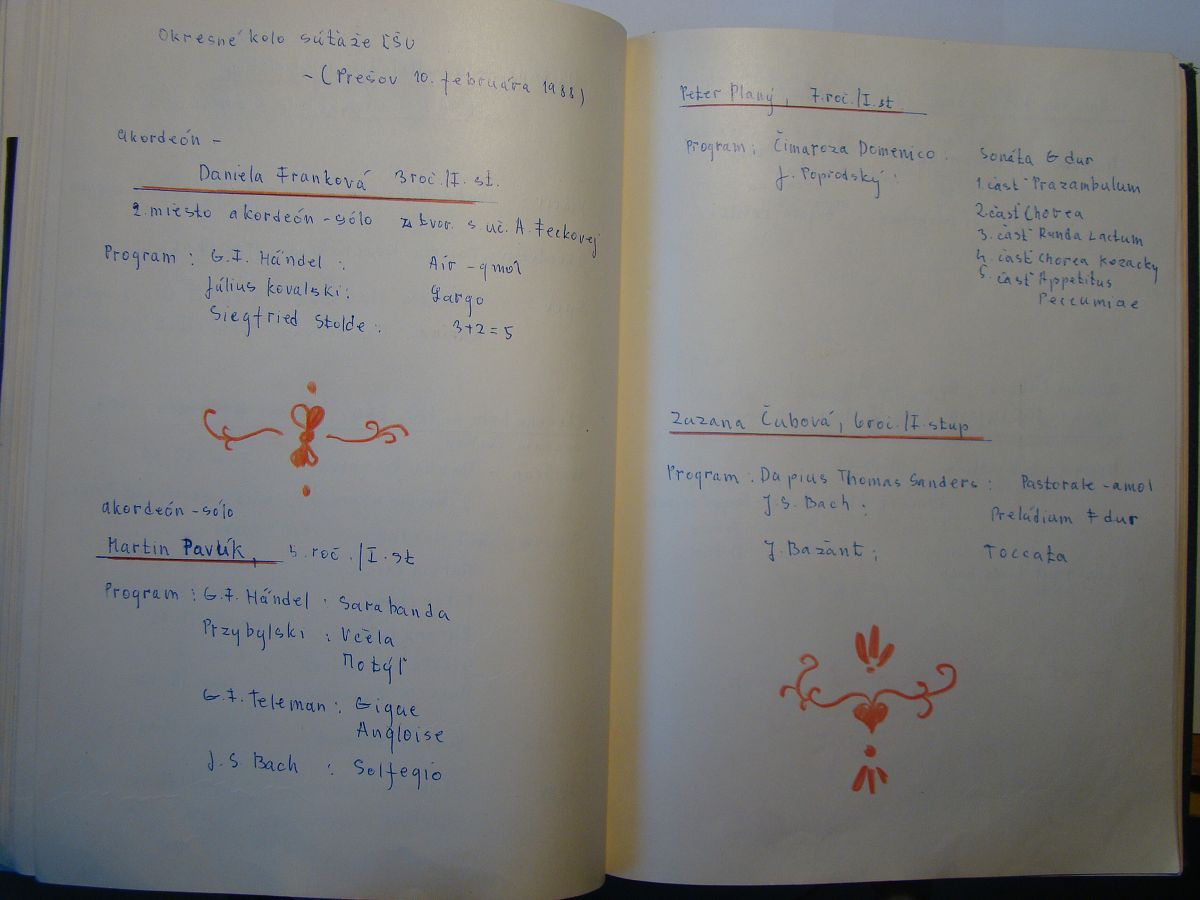 Okresné kolo súťaže ĽŠU
- (Prešov 10. februára 1988)
akordeón -
Daniela Franková 3 roč./I. st.
2. miesto akordeón - sólo z tvor. s. uč. A. Feckovej
Program : G. F. Händel : Air - g mol
Július Kovalski : Largo
Siegfried Stolde : 3+2 = 5
akordeón - sólo
Martin Pavlík, 5. roč./I. st
Program : G. F. Händel . Sarabanda
Przybylski : Včela
Motýľ
G. F. Teleman : Gigue
Angloise
J. S Bach : Solfegio
Peter Planý, 7. roč./I. st
Program : Čimaroza Domenico . Sonáta G dur
J. Poprodský : 1. časť Prazambulum
2. časť Chorea
3. časť Runda Lactum
4. časť Chorea Kozacky
5. časť Appetitus
Peccumiae
Zuzana Čubová, 6 roč./I. stup
Program : Da pius Thomas Sanders : Pastorale - a mol
J. S. Bach : Prelúdium F dur
J. Bazant : Toccata